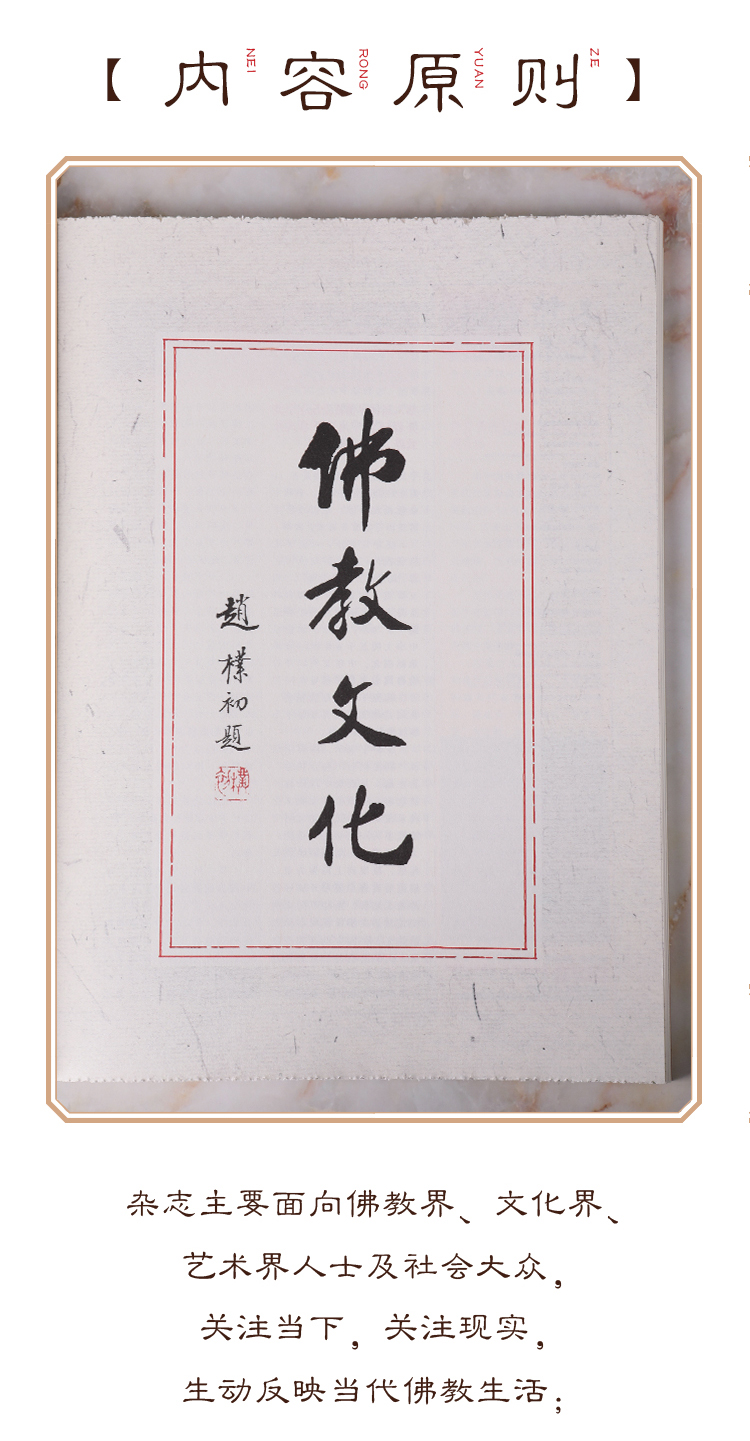 【内容原则】
NEI RONG YUAN ZE
佛教文化
趙樸初題
杂志主要面向佛教界、文化界、
艺术界人士及社会大众，
关注当下，关注现实，
生动反映当代佛教生活；